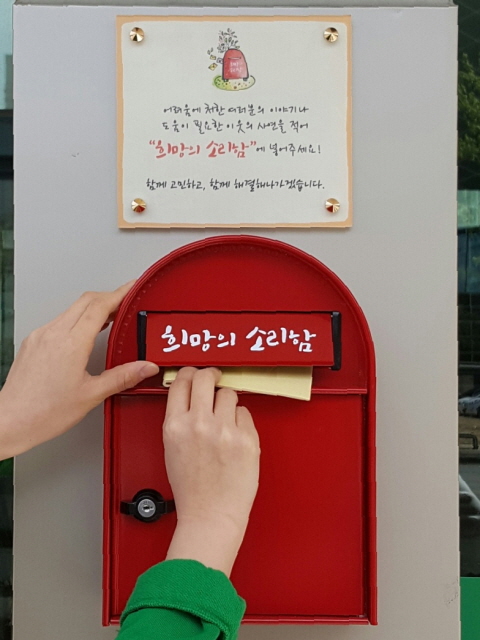 어려움에 처한 여러분의 이야기나
도움이 필요한 이웃의 사연을 적어
"희망의 소리함"에 넣어주세요!
함께 고민하고, 함께 해결해나가겠습니다.
희망의 소리함